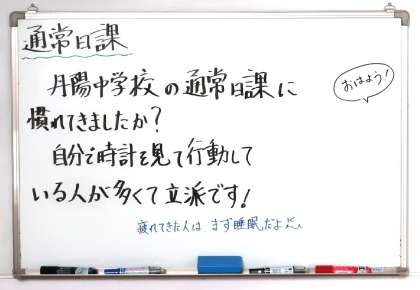 通常日課
丹陽中学校の通常日課に
慣れてきましたか？
おはよう！
自分で時計を見て行動して
いる人が多くて立派です！
疲れてきた人は、まず睡眠だよ〜。